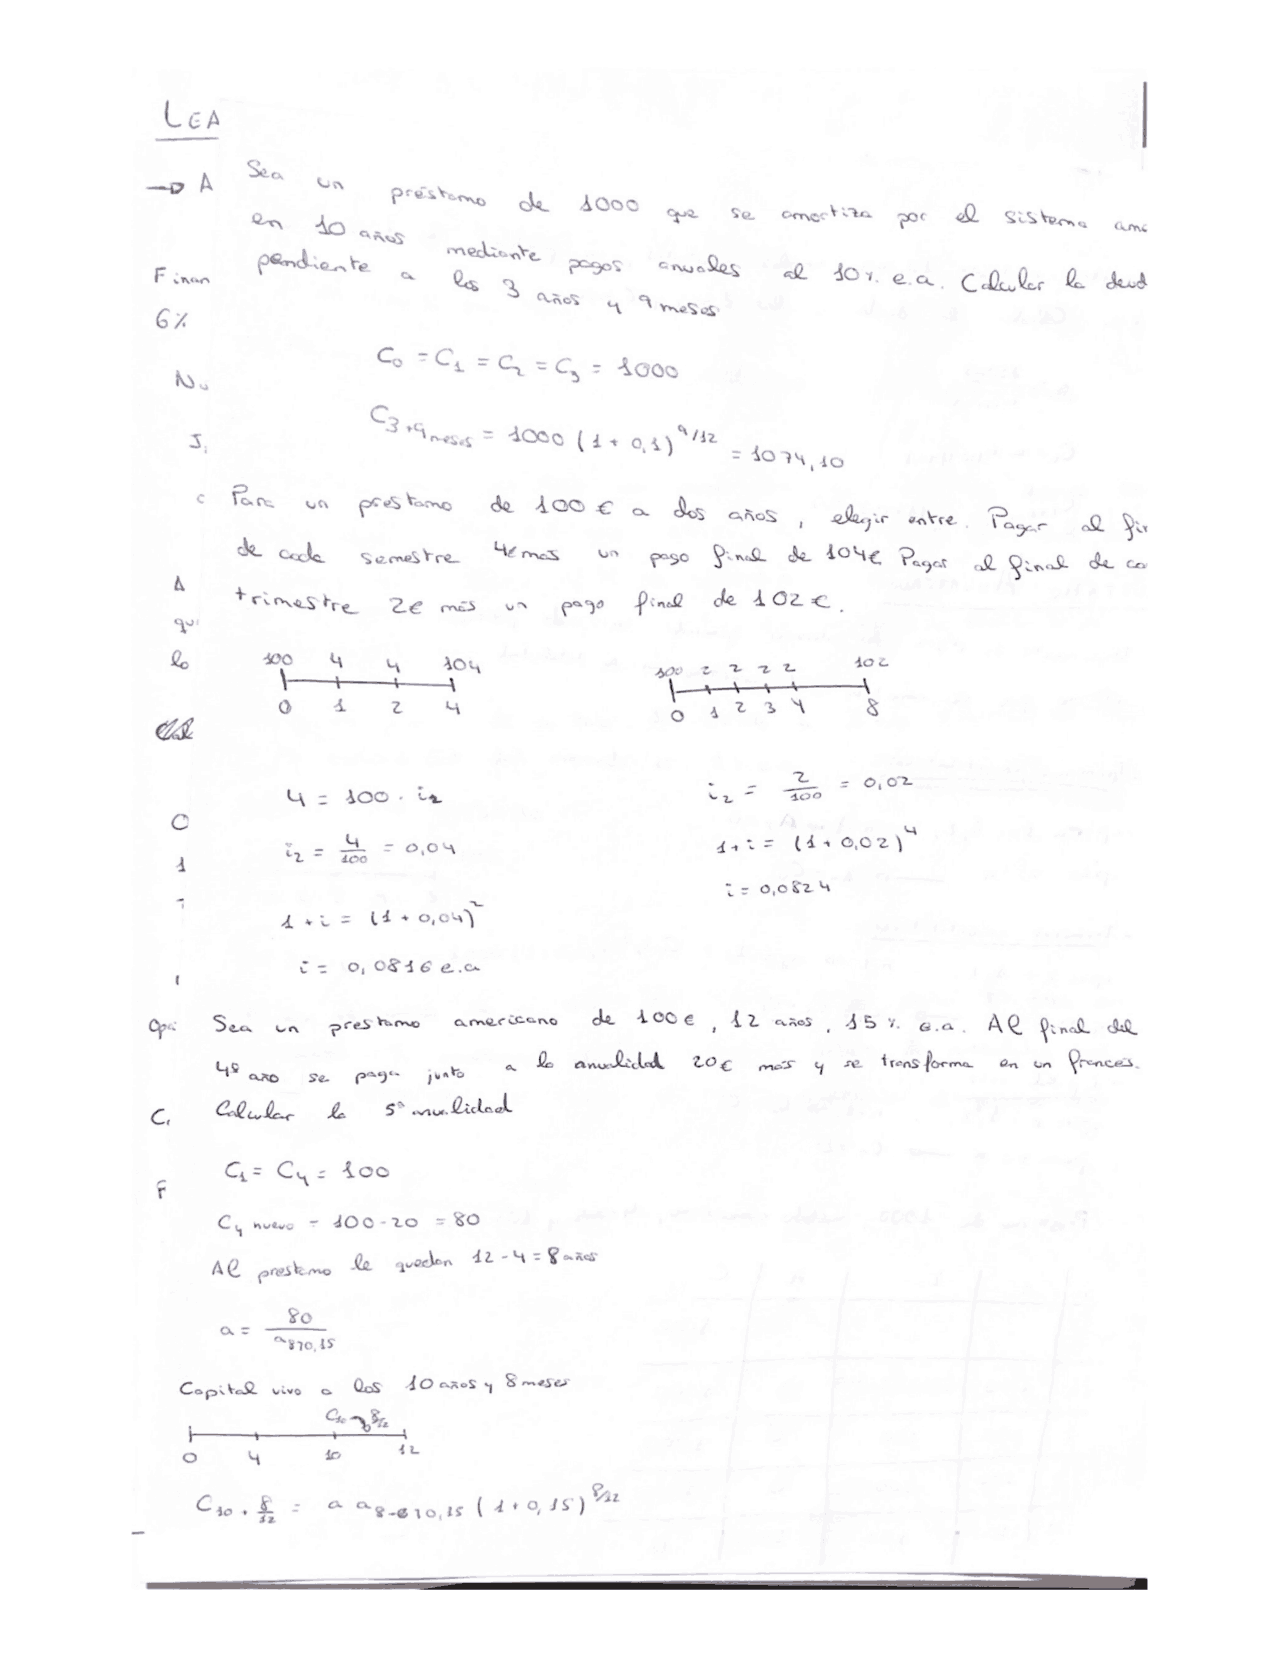 LEA
A Sea un préstamo de 1000 que se amortiza por el sistema
en 10 años mediante pagos anuales al 10% e.a. Calcular la deud
Finan pendiente a los 3 años y 9 meses
6%
C₀ = C₁ = C₂ = C₃ = 1000
C₃ + 9 meses = 1000 (1 + 0,1)^9/12 = 1074,10
c Para un prestamo de 100 € a dos años, elegir entre. Pagar al fin
de cada semestre 4€ mas un pago final de 104€ Pagar al final de ca
trimestre 2€ más un pago final de 102 €.
lo 100 4 4 104 100 2 2 2 2 102
0 1 2 4 0 1 2 3 4 8
4 = 100 · i₂ i₂ = 2/100 = 0,02
i₂ = 4/100 = 0,04 1+i = (1 + 0,02)⁴
i = 0,0824
1 + i = (1 + 0,04)²
i = 0,0816 e.a
Sea un prestamo americano de 100€, 12 años, 15% e.a. Al final del
4º año se paga junto a la anualidad 20€ más y se transforma en un frances.
Calcular la 5ª anualidad
C₁ = C₄ = 100
C₄ nuevo = 100 - 20 = 80
Al prestamo le quedan 12 - 4 = 8 años
a = 80/a₈⌉₀,₁₅
Capital vivo a los 10 años y 8 meses
C₁₀ 8/12
0 4 10 12
C₁₀ + 8/12 = a a₈₋₆⌉₀,₁₅ (1 + 0,15)^8/12